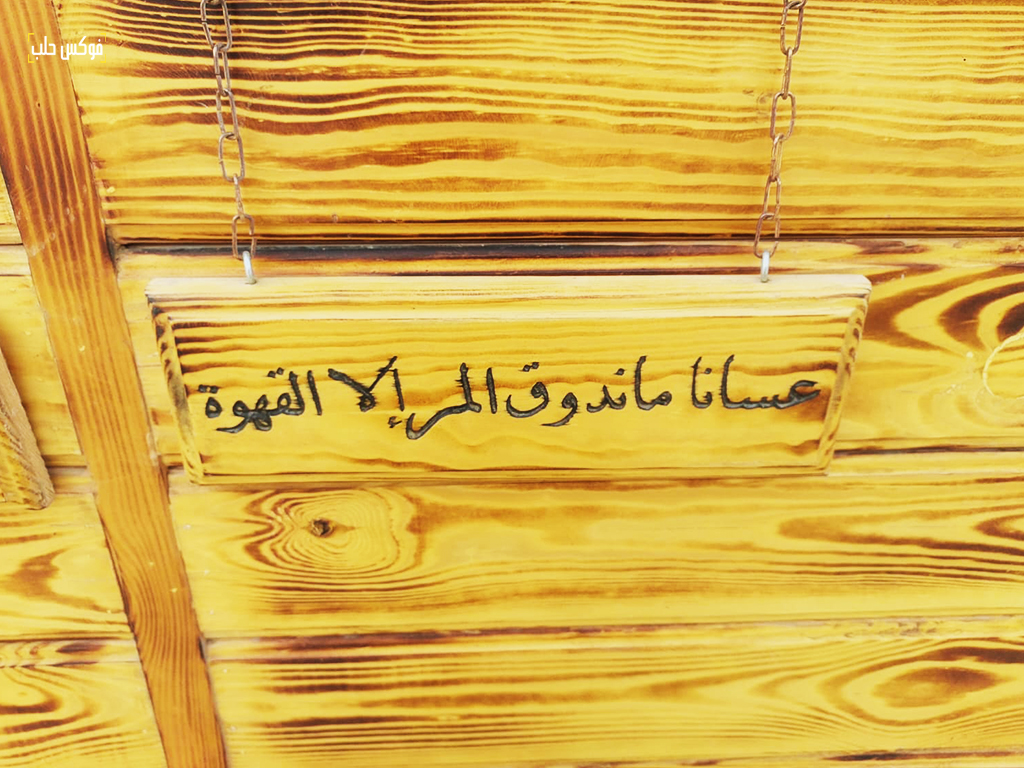 فوكس حلب
عسانا ماندوق المر إلا القهوة